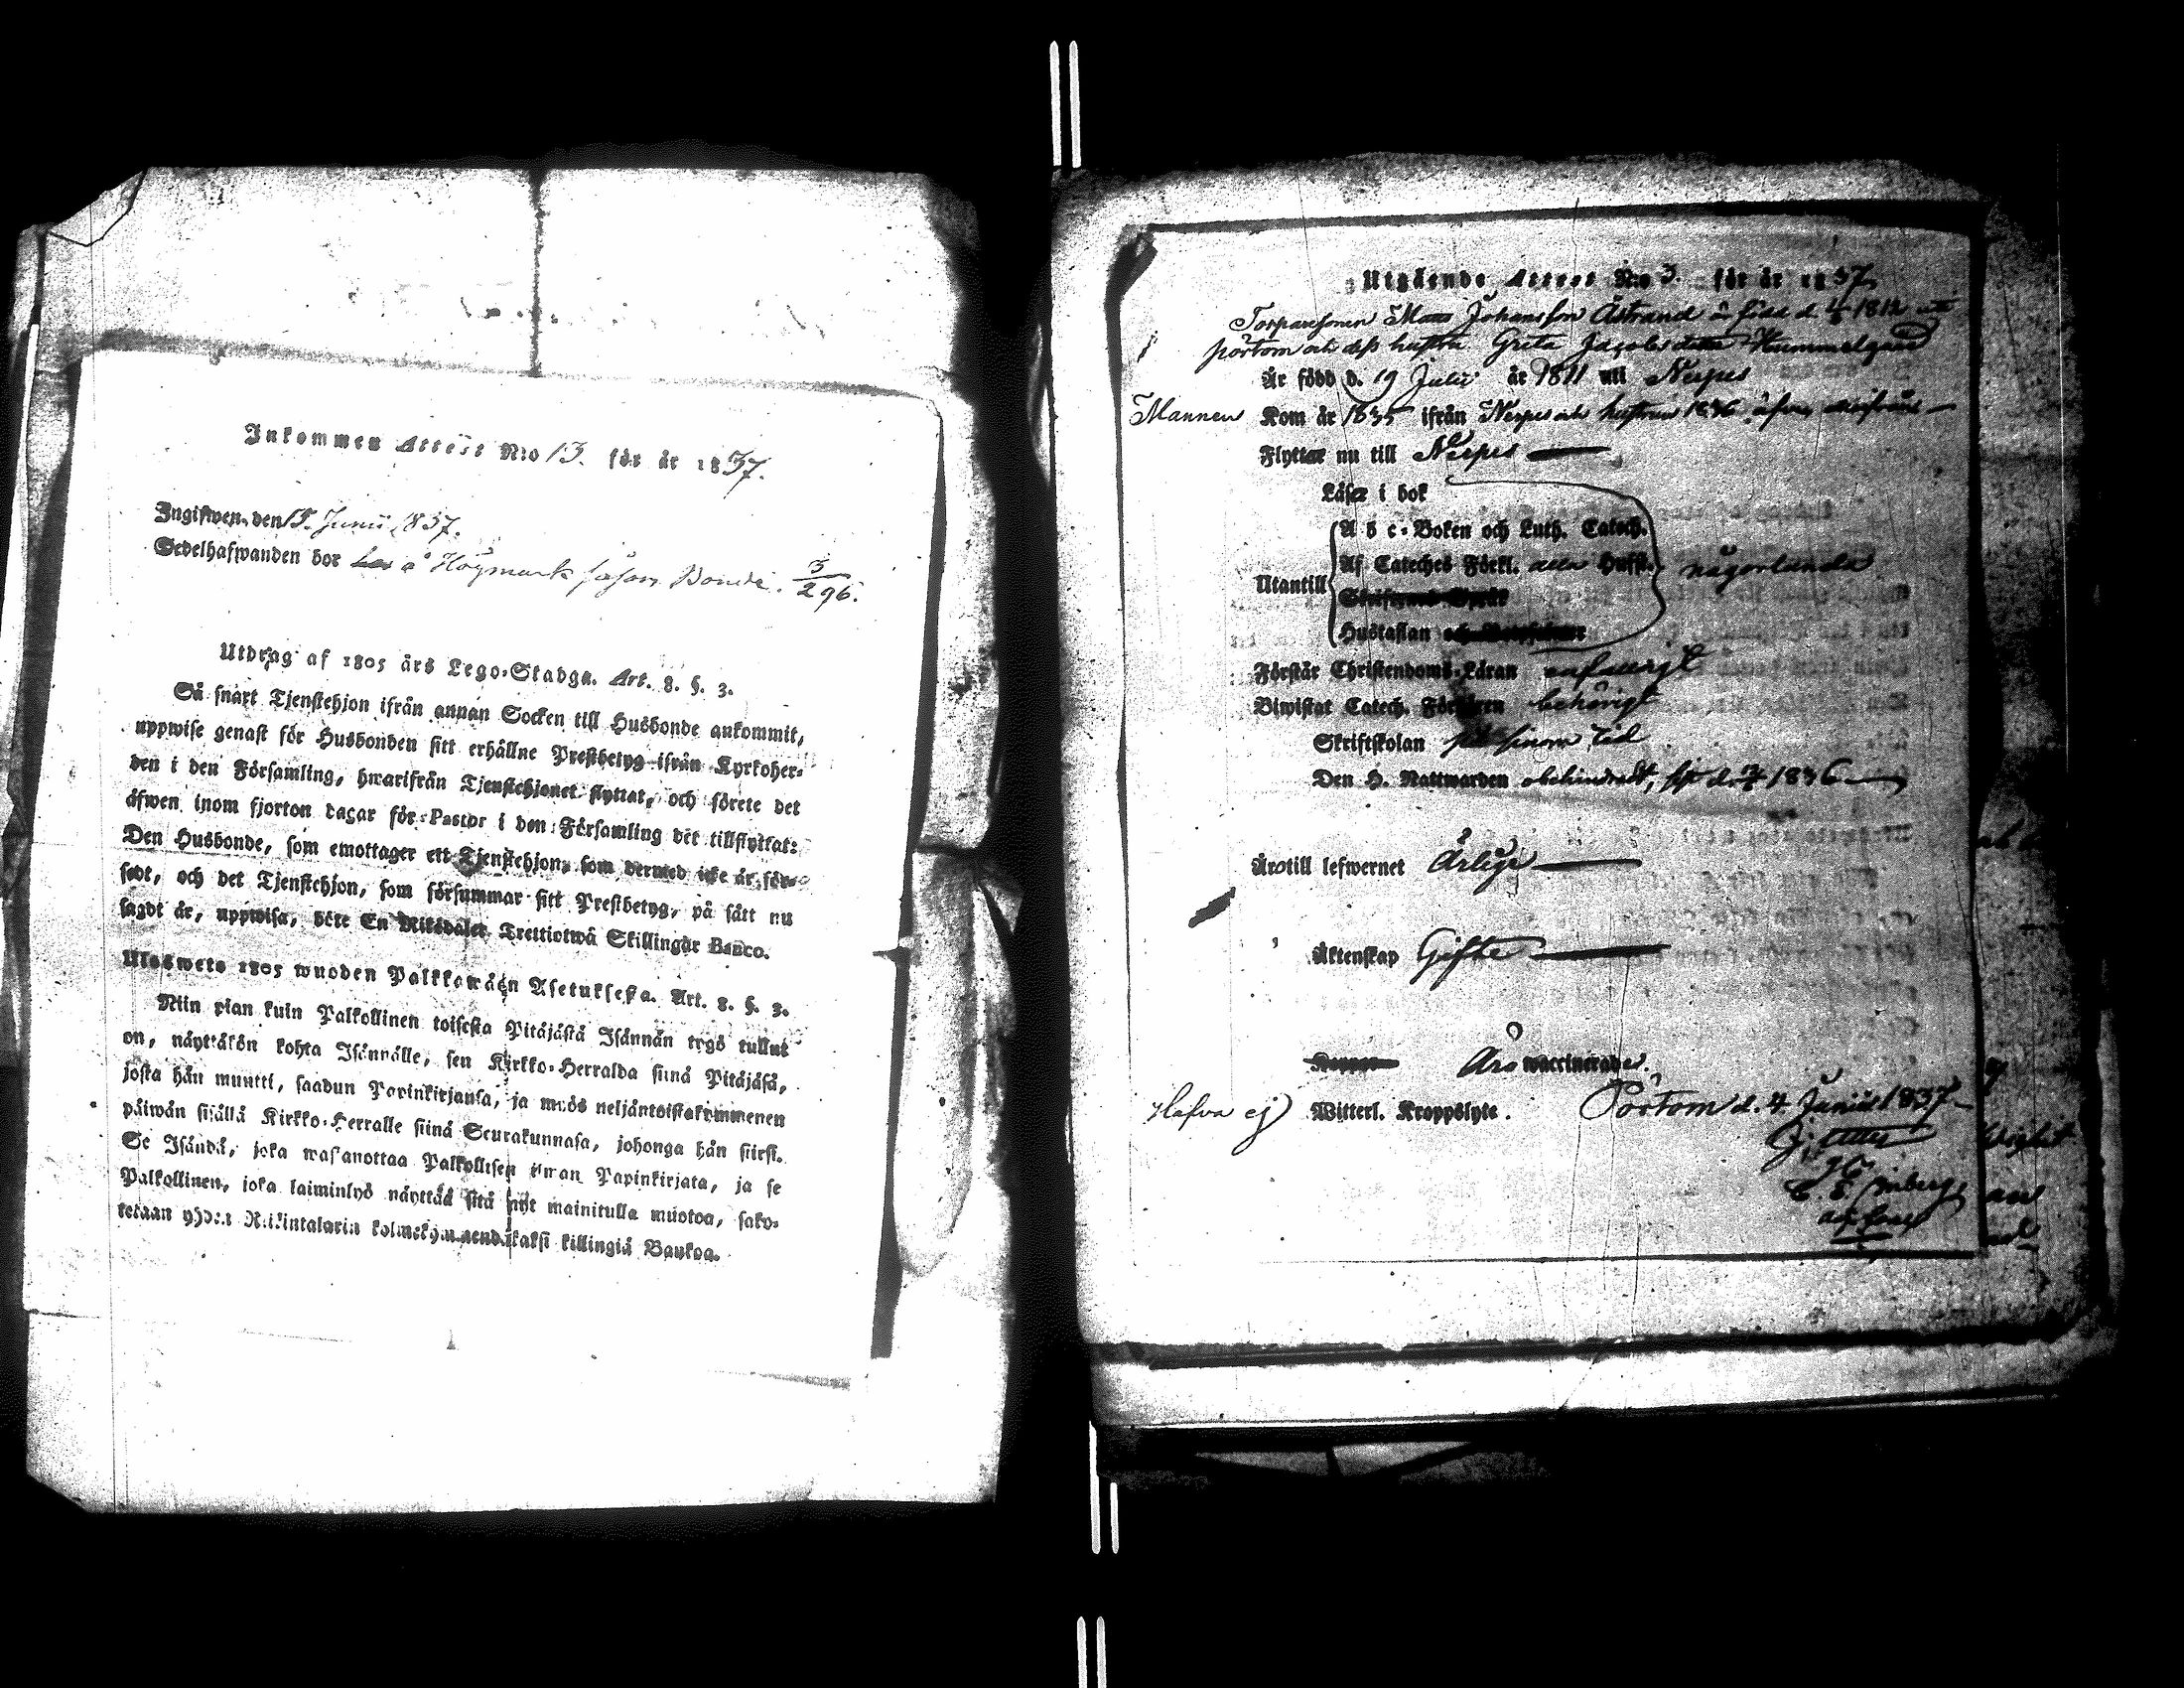 Inkommen Attest N:o 13. för år 1837.
Ingifwen den 15. Junii 1837.
Sedelhafwanden bor hos å Högmark Bonde. 3/296.
Utdrag af 1805 års Lego-Stadga. Art. 8. §. 3.
Så snart Tjenstehjon ifrån annan Socken till Husbonde ankommit,
uppwise genast för Husbonden sitt erhållne Prestbetyg ifrån Kyrkoher-
den i den Församling, hwarifrån Tjenstehjonet flyttat, och förete det
äfwen inom fjorton dagar för Pastor i den Församling det tillflyttat:
Den Husbonde, som emottager ett Tjenstehjon, som dermed icke är för-
sedt, och det Tjenstehjon, som försummar sitt Prestbetyg, på sätt nu
sagdt är, uppwisa, böte En Riksdaler Trettiotwå Skillingar Banco.
Ulosweto 1805 wuoden Palkkawäen Asetuksesta. Art. 8. §. 3.
Niin pian kuin Palkollinen toisesta Pitäjästä Isännän tygö tullut
on, näyttäkön kohta Isännälle, sen Kirkko-Herralda siinä Pitäjäsä,
josta hän muutti, saadun Papinkirjansa, ja myös neljäntoistakymmenen
päiwän sisällä Kirkko-Herralle siinä Seurakunnasa, johonga hän siirsi.
Se Isändä, joka wastanottaa Palkollisen ilman Papinkirjata, ja se
Palkollinen, joka laiminlyö näyttää sitä nyt mainitulla muotoa, sako-
tetaan yhden Riikintalarin kolmekymmendäkaksi killingiä Bankoa.
Utgående Attest N:o 3. för år 1837
Torparesonen Matts Johansson Åstrand är född d. 1812 uti
Pörtom och dess hustru Greta Jacobsdotter Hummelgård
År född d. 19 Julii år 1811 uti Nerpes
Mannen Kom år 1835 ifrån Nerpes och hustrun 1836 äfven derifrån
Flyttar nu till Nerpes
Läser i bok
A b c-Boken och Luth. Catech.
Utantill Af Cateches Förkl. Hussl. någorlunda
Skriftenes Språk
Hustaflan
Förstår Christendoms-Läran enfaldigt
Biwistat Catech. Förhören behörigt
Skriftskolan på sinom tid
Den H. Nattwarden obehindradt, 1836
Äro till lefwernet Ärlige
Äktenskap Gifte
Koppor Äro waccinerade.
Hafva ej Witterl. Kroppslyte. Pörtom d. 4 Junii 1837